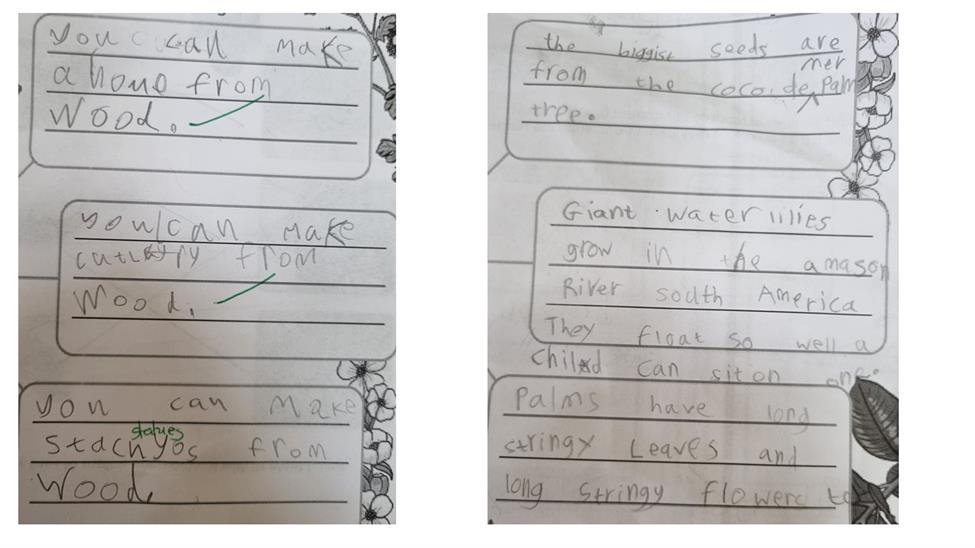 you can make
a houo from
Wood.
you can make
cutlery from
Wood.
you can Make
statues
stachyos from
Wood.
the biggist seeds are
mer
from the cocoide Palm
tree.
Giant water lilies
grow in the amason
River south America
They float so well a
child can sit on one.
Palms have long
stringy Leaves and
long stringy flowers to